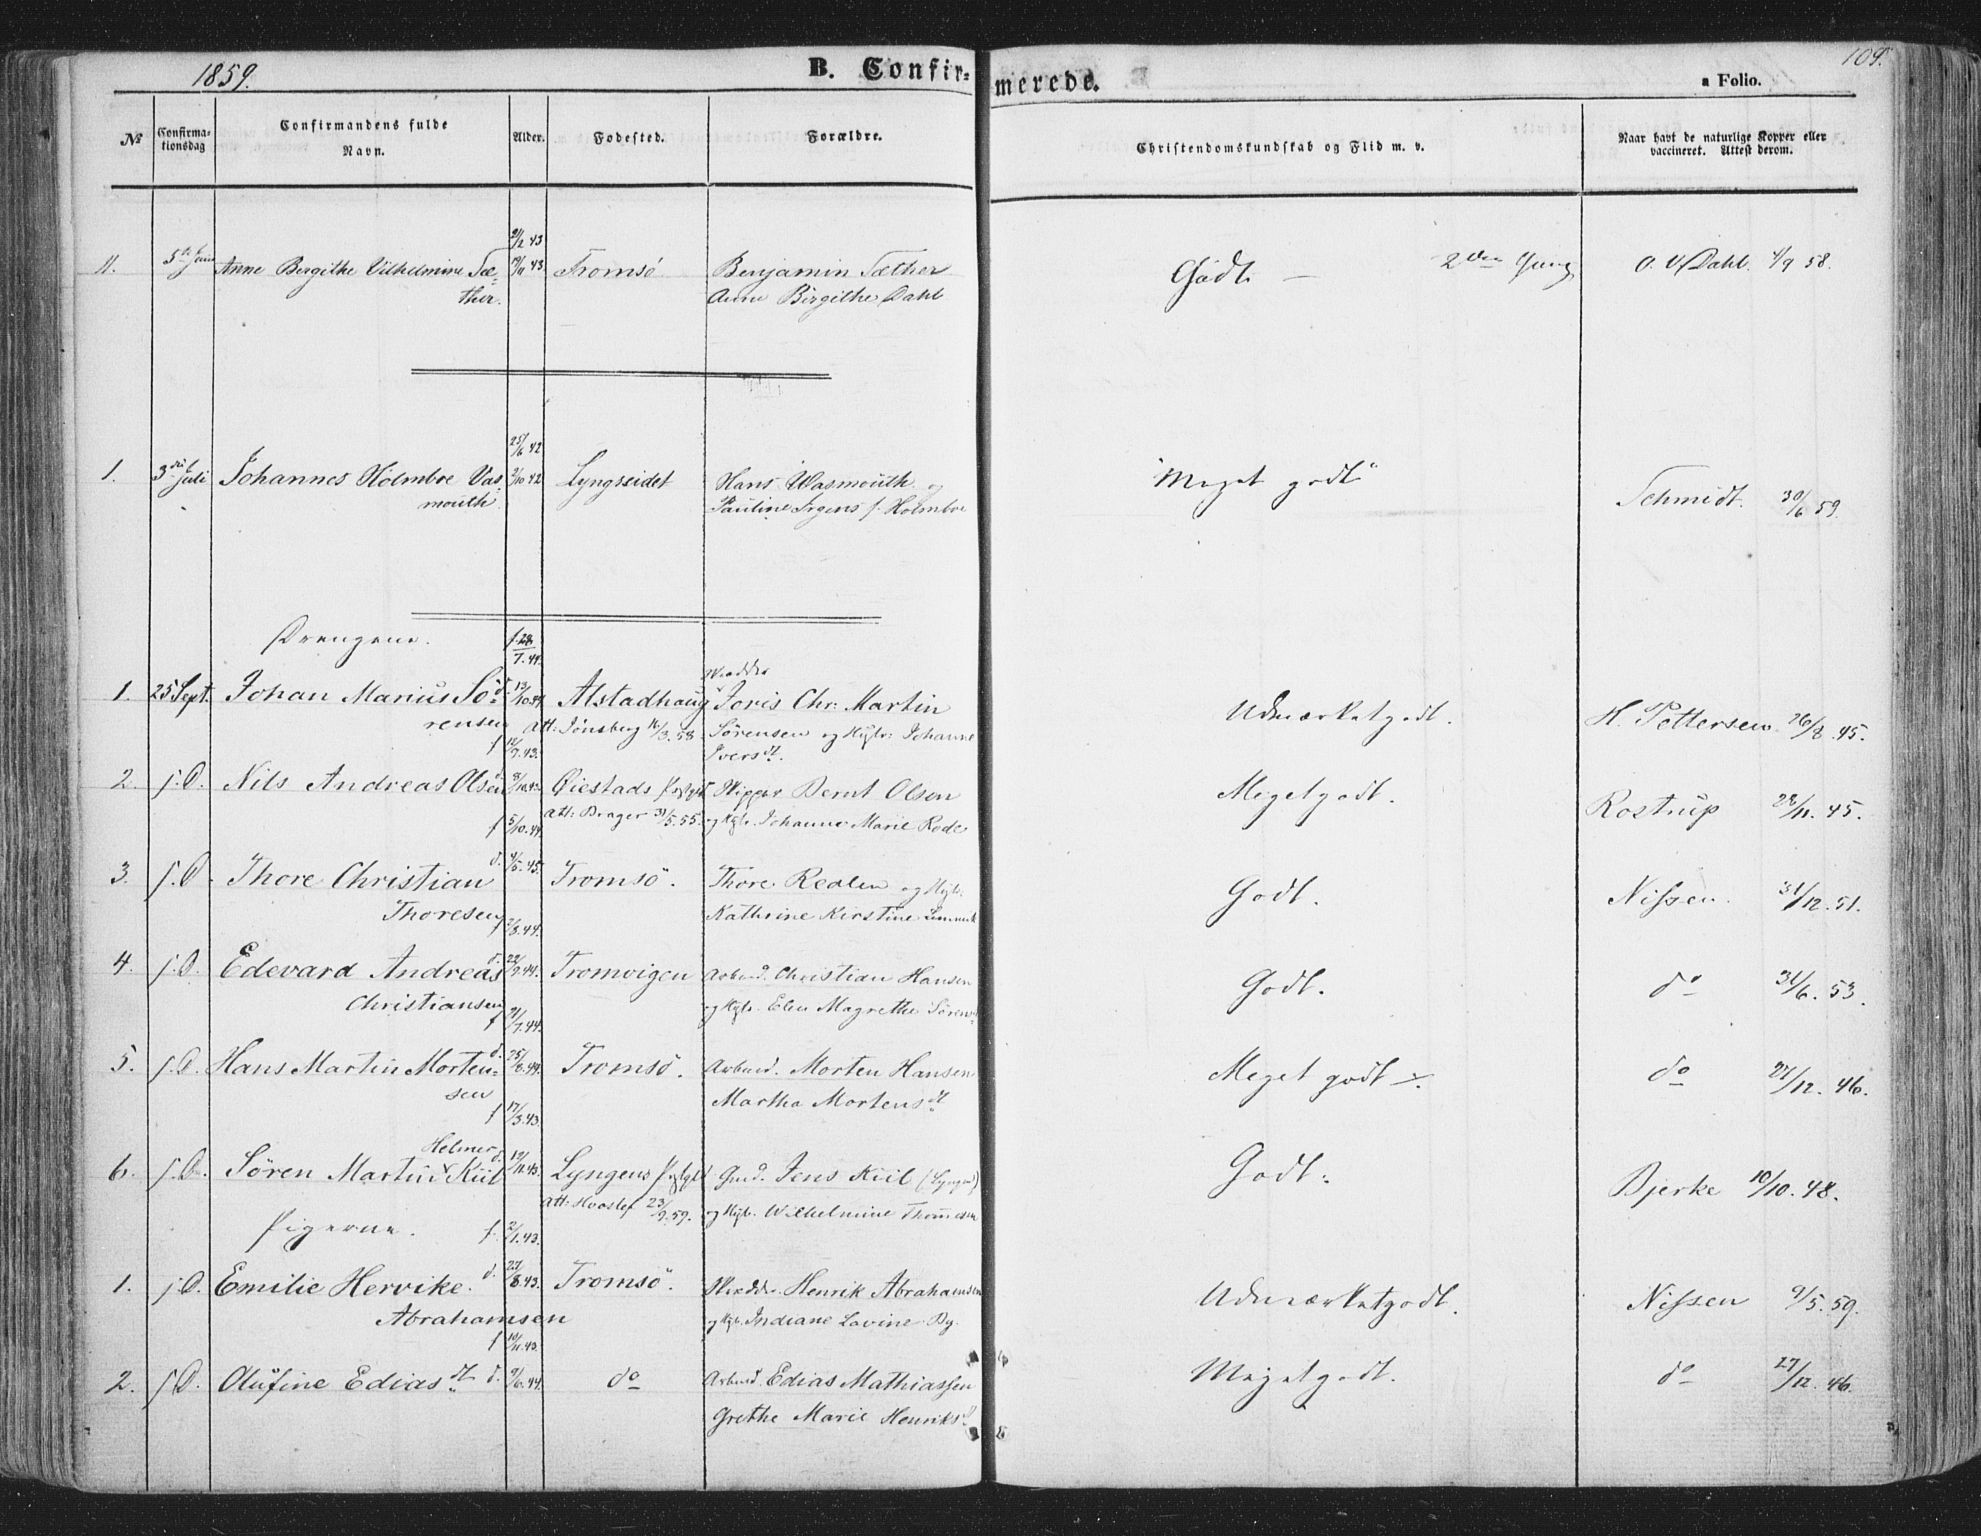 1859. B. Confir- merede. 109.
a Folio.
No Confirma-tionsdag Confirmandens fulde Navn. Alder. Fødested. Forældre. Christendomskundskab og Flid m. v. Naar havt de naturlige Kopper eller vaccineret. Attest derom.
2/2 43
11. 5te Juni Anne Bergithe Vilhelmine Sæ- 43 Tromsö Benjamin Sæther Godt — 2den Gang O. V. Dahl. 4/9 58.
ther. Anne Birgithe Dahl
25/6 42
1. 3die Juli Johannes Holmboe Vas- 2/10 42 Lyngseidet Hans Wasmouth og "Meget godt" Schmidt. 30/6 59.
mouth. Pauline Irgens f. Holmboe
Drengene. f. 28/7.44.
1. 25 Sept. Johan Marius Sö- d. 13/10.44. Alstadhaug Joris Chr. Martin Udmærket godt. H. Pettersen 26/8.45.
rensen Att: Jönsberg 16/3.58. Sørensen og Hgtr: Johanne
f 12/9.43. Iversdt.
2. s.D. Nils Andreas Olsen d. 8/10.43. Øiestads Prstgld Skipper Bernt Olsen Meget godt. Rostrup 28/11.45.
f 5/10.44. Att: Brager 31/5.55. og Hgtr. Johanne Marie Rode
3. s.D. Thore Christian d. 4/5.45. Tromsö. Thore Redlen og Hgtr. Godt. Nissen. 31/12.51.
Thoresen f 44. Kathrine Kirstine
4. s.D. Edevard Andreas d. 22/9.44. Tromvigen Arbmd. Christian Hansen Godt. do 31/6.53.
Christiansen f 21/7.44. og Hgtr. Elen Magrethe Sörensdt
5. s.D. Hans Martin Morten- d. 25/8.44. Tromsö. Arbmd. Morten Hansen Meget godt do 27/12.46.
sen f 17/3.43. Martha Mortensdt
Helmer
6. s.D. Sören Martin Kiil d. 19/11.43. Lyngens Prstgld Gmd. Jens Kiil (Lyngen) Godt. Bjerke 10/10.48.
Att: Hvoslef 23/9.59. og Hgtr. Wilhelmine Thomesen
Pigerne. f. 2/1.43.
1. s.D. Emilie Hervike. d. 27/8.43. Tromsö. Skrædder Henrik Abrahamsen Udmærket godt. Nissen 9/5.59.
Abrahamsen og Hgtr. Indiane Lavine By.
f 10/11.43.
2. s.D. Olufine Ediasdt d. 9/6.44. do Arbmd. Edias Mathiassen Meget godt. do 27/12.46.
Grethe Marie Henriksdt